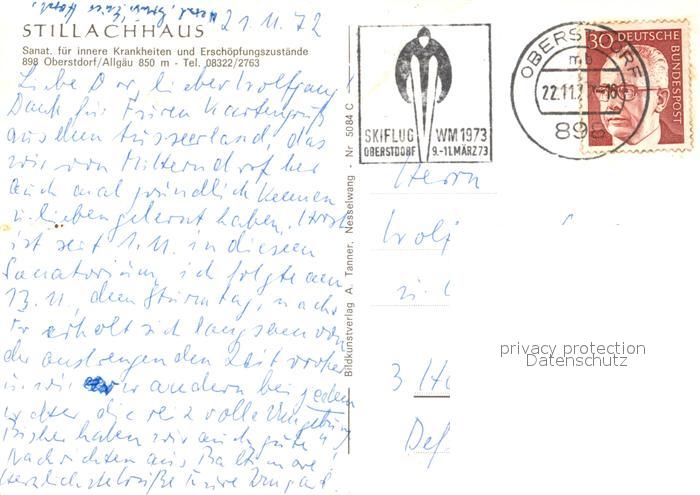 21.11.72
STILLACHHAUS
Sanat. für innere Krankheiten und Erschöpfungszustände
898 Oberstdorf/Allgäu 850 m - Tel. 08322/2763
Liebe lieber Wolfgang!
Dank für Euren Kartengruß
aus dem Ausseerland, das
wir von Mitterndorf her
auch mal gründlich kennen
u. lieben gelernt haben. Horst
ist seit 1.11. in diesem
Sanatorium, ich folgte am
13.11, dem Sturmtag, nach.
Er erholt sich langsam von
der anstrengenden Zeit vorher
u. wir wandern bei jedem
Wetter die reizvolle Umgebung
Bisher haben wir auch gute
Nachrichten aus Baltimore
Herzlichste Grüße Eure Irmgard.
Bildkunstverlag A. Tanner, Nesselwang - Nr. 5084 C
SKIFLUG WM 1973
OBERSTDORF 9.-11.MÄRZ 73
OBERSTDORF
mb
22.11.7 -18
898
30 DEUTSCHE
BUNDESPOST
Herrn
Wolf
u.
3
privacy protection
Datenschutz